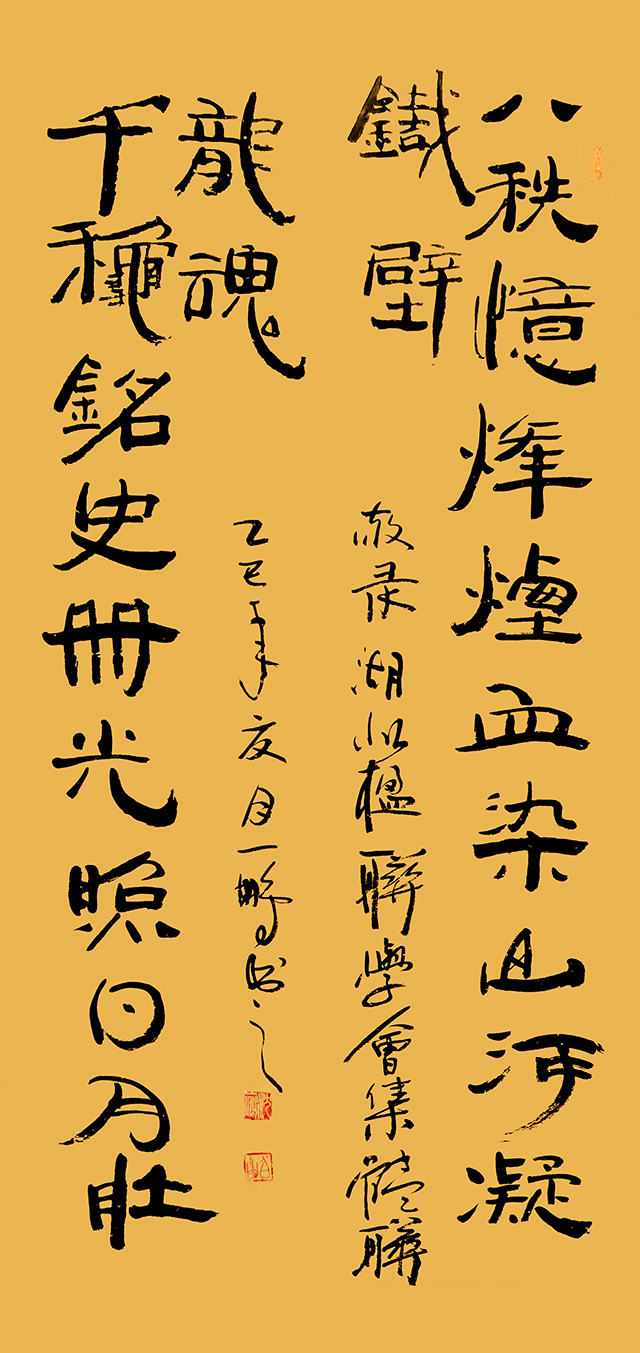 八秩憶烽煙血染山河凝
鐵壁
敬录湖北楹聯學會集體聯
千龝銘史冊光照日月壯
龍魂
乙巳年夏月一鵬书之